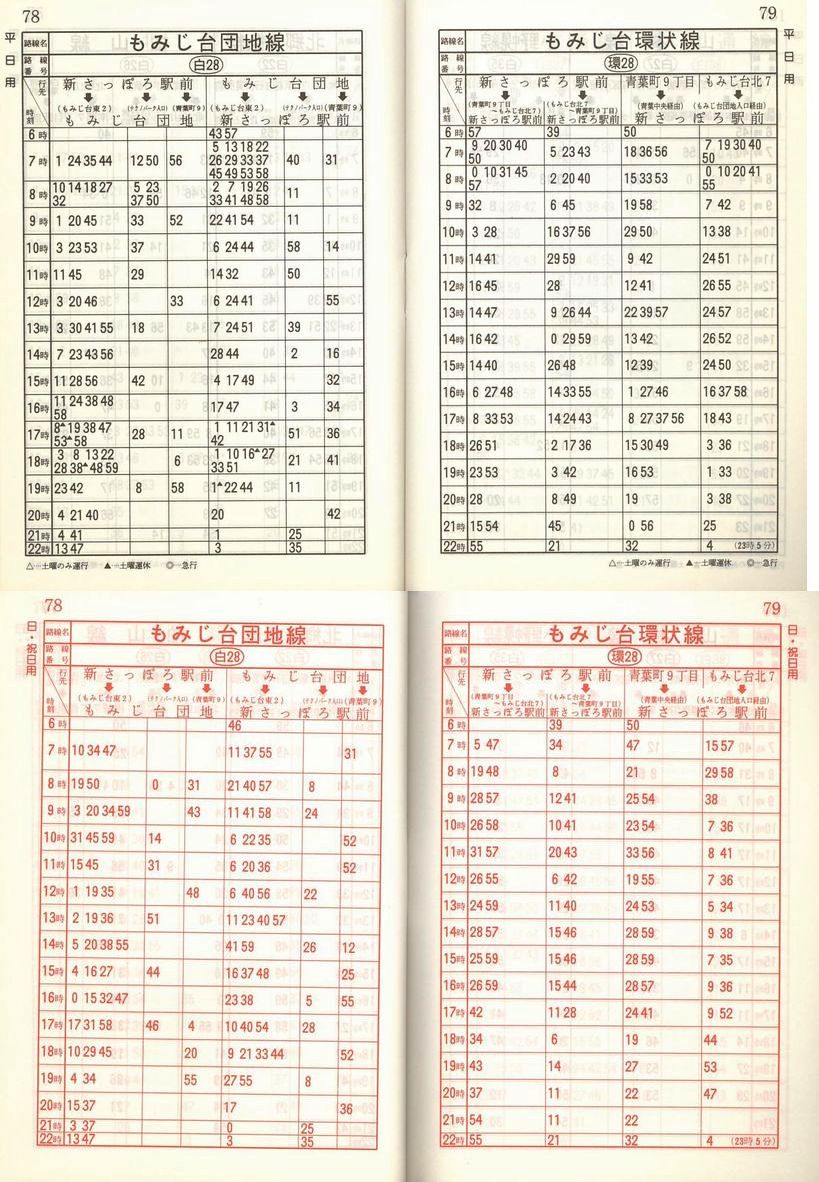 78
平日用
路線名 もみじ台団地線
路線番号 白28
行先 新さっぽろ駅前 もみじ台団地
(もみじ台東2) (テクノパーク入口) (青葉町9) (もみじ台東2) (テクノパーク入口) (青葉町9)
時刻 もみじ台団地 新さっぽろ駅前
6時 43 57
7時 1 24 35 44 12 50 56 5 13 18 22 26 29 33 37 45 49 53 58 40 31
8時 10 14 18 27 32 5 23 37 50 2 7 19 26 33 41 48 58 11
9時 1 20 45 33 52 22 41 54 11
10時 3 23 53 37 6 24 44 58 14
11時 11 45 29 14 32 50
12時 3 20 46 33 6 24 41 55
13時 3 30 41 55 18 7 24 51 39
14時 7 23 43 56 28 44 2 16
15時 11 28 56 42 4 17 49 32
16時 11 24 38 48 58 17 47 3 34
17時 8▲ 19 38 47 53▲ 58 28 11 1 11 21 31▲ 42 51 36
18時 3 8 13 22 28 38▲ 48 59 6 1 10 16▲ 27 33 51 21 41
19時 23 42 8 58 1▲ 22 44 11
20時 4 21 40 20 42
21時 4 41 1 25
22時 13 47 3 35
△…土曜のみ運行 ▲…土曜運休 ◎…急行
79
平日用
路線名 もみじ台環状線
路線番号 環28
行先 新さっぽろ駅前 青葉町9丁目 もみじ台北7
(青葉町9丁目〜もみじ台北7) (もみじ台北7〜青葉町9丁目) (青葉中央経由) (もみじ台団地入口経由)
時刻 新さっぽろ駅前 新さっぽろ駅前 新さっぽろ駅前
6時 57 39 50
7時 9 20 30 40 50 5 23 43 18 36 56 7 19 30 40 50
8時 0 10 31 45 57 2 20 40 15 33 53 0 10 20 41 55
9時 32 6 45 19 58 7 42
10時 3 28 16 37 56 29 50 13 38
11時 14 41 29 59 9 42 24 51
12時 16 45 28 12 41 26 55
13時 14 47 9 26 44 22 39 57 24 57
14時 16 42 0 29 59 13 42 26 52
15時 14 40 26 48 12 39 24 50
16時 6 27 48 14 33 55 1 27 46 16 37 58
17時 8 33 53 14 24 43 8 27 37 56 18 43
18時 26 51 2 17 36 15 30 49 3 36
19時 23 53 3 42 16 53 1 33
20時 28 8 49 19 3 38
21時 15 54 45 0 56 25
22時 55 21 32 4 (23時5分)
△…土曜のみ運行 ▲…土曜運休 ◎…急行
78
日・祝日用
路線名 もみじ台団地線
路線番号 白28
行先 新さっぽろ駅前 もみじ台団地
(もみじ台東2) (テクノパーク入口) (青葉町9) (もみじ台東2) (テクノパーク入口) (青葉町9)
時刻 もみじ台団地 新さっぽろ駅前
6時 46
7時 10 34 47 11 37 55 31
8時 19 50 0 31 21 40 57 8
9時 3 20 34 59 43 11 41 58 24
10時 31 45 59 14 6 22 35 52
11時 15 45 31 6 20 36 52
12時 1 19 35 48 6 40 56 22
13時 2 19 36 51 11 23 40 57
14時 5 20 38 55 41 59 26 12
15時 4 16 27 44 16 37 48 25
16時 0 15 32 47 23 38 5 55
17時 17 31 58 46 4 10 40 54 28
18時 10 29 45 20 9 21 33 44 52
19時 4 34 55 27 55 8
20時 15 37 17 36
21時 3 37 0 25
22時 13 47 3 35
79
日・祝日用
路線名 もみじ台環状線
路線番号 環28
行先 新さっぽろ駅前 青葉町9丁目 もみじ台北7
(青葉町9丁目〜もみじ台北7) (もみじ台北7〜青葉町9丁目) (青葉中央経由) (もみじ台団地入口経由)
時刻 新さっぽろ駅前 新さっぽろ駅前 新さっぽろ駅前
6時 39 50
7時 5 47 34 47 15 57
8時 19 48 8 21 29 58
9時 28 57 12 41 25 54 38
10時 26 58 10 41 23 54 7 36
11時 31 57 20 43 33 56 8 41
12時 26 55 6 42 19 55 7 36
13時 24 59 11 40 24 53 5 34
14時 28 57 15 46 28 59 9 38
15時 25 59 15 46 28 59 7 35
16時 26 59 15 44 28 57 9 36
17時 42 11 28 24 41 9 52
18時 34 6 19 44
19時 43 14 27 53
20時 37 11 22 47
21時 54 11 22
22時 55 21 32 4 (23時5分)